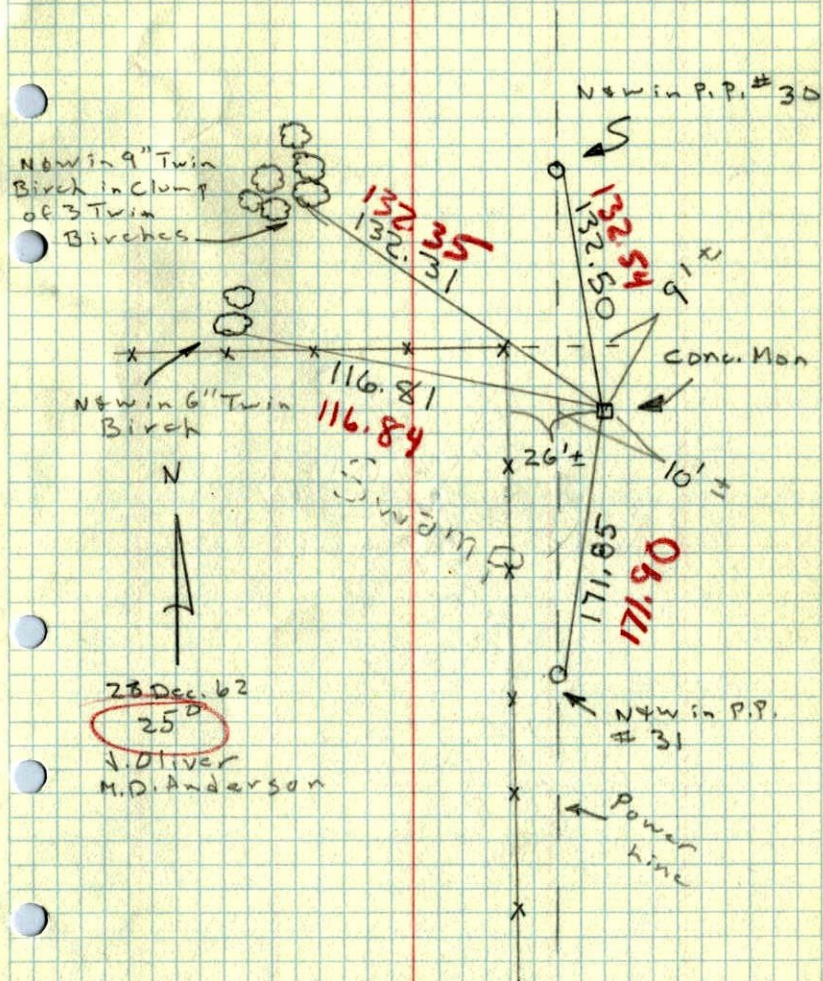 N&W in P.P. # 30
N&W in 9" Twin
Birch in Clump
of 3 Twin
Birches
132.35
132.31
132.54
132.50
9' ±
Conc. Mon
116.81
116.84
N&W in 6" Twin
Birch
26'±
10' ±
N
Swamp
171.85
171.90
28 Dec. 62
25°
J. Oliver
M.D. Anderson
N&W in P.P.
# 31
Power
Line